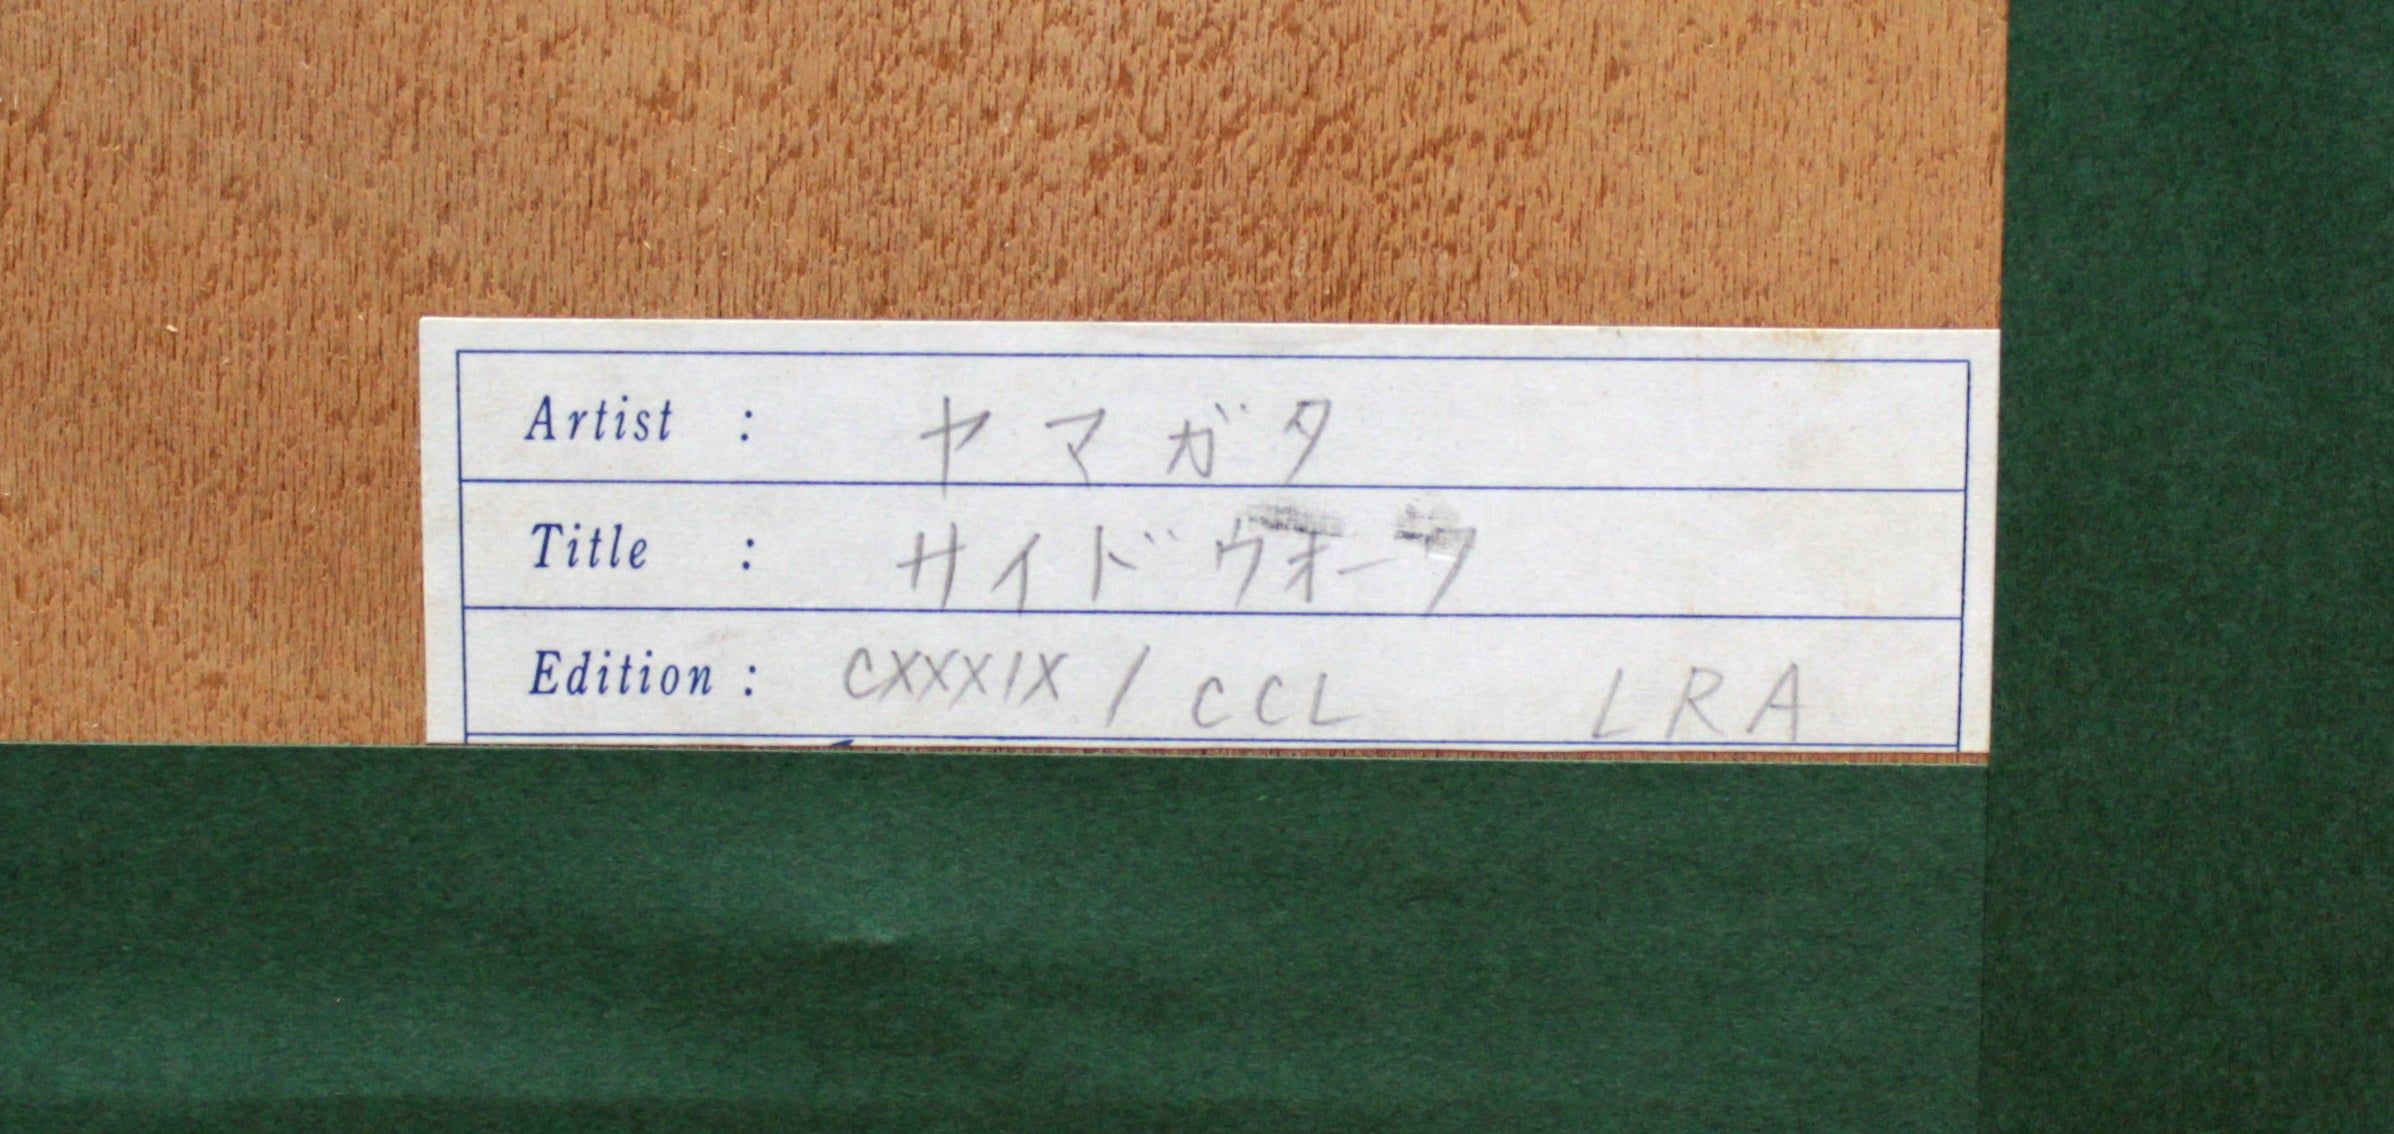 Artist : ヤマガタ
Title : サイドウォーク
Edition : CXXXIX / CCL LRA